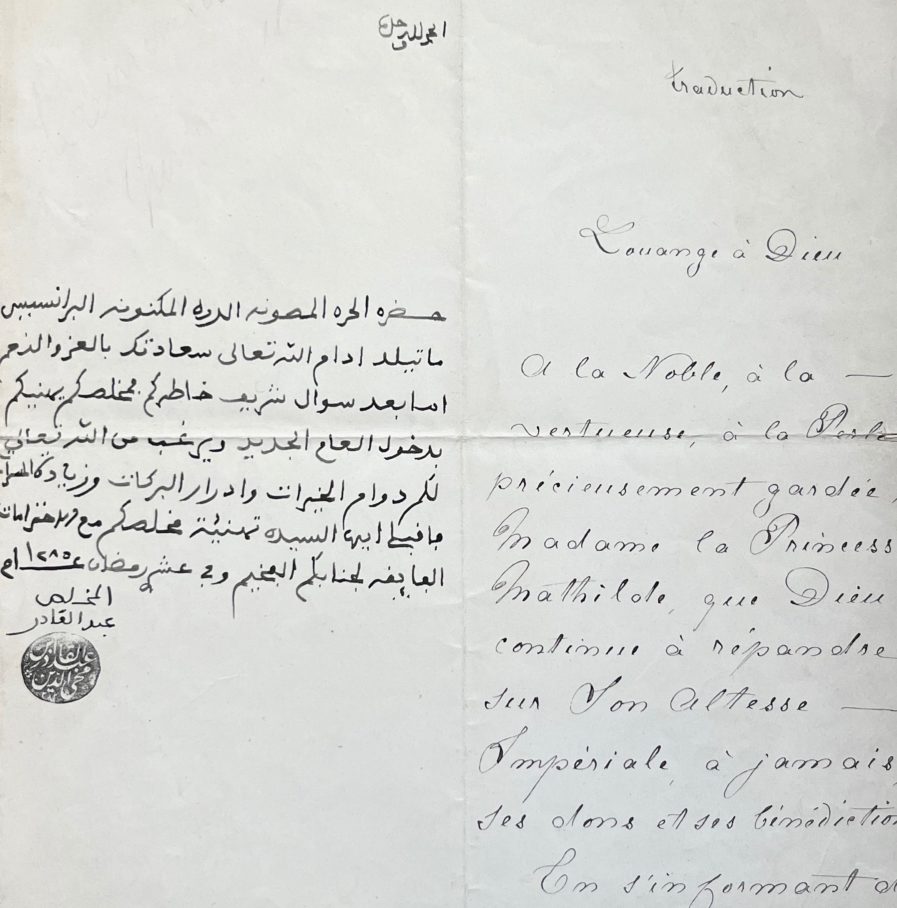 الحمد لله وحده
حضره الحره المصونه الدره المكنونه البرانسيس
ماتيلد ادام الله تعالى سعادتك بالعز والنعم
اما بعد سوال شريف خاطركم فمخلصكم يهنيكم
بدخول العام الجديد ويرغب من الله تعالى
لكم دوام الخيرات وادرار البركات وزيادة
ايها السيده تهنيئة مخلصكم مع
الفايقه لجنابكم الفخيم وفى عشر رمضان عــام ١٢٨٥
المخلص
عبد القادر
traduction
Louange à Dieu
A la Noble, à la —
vertueuse, à la Perle
précieusement gardée,
Madame la Princess
Mathilde, que Dieu
continue à répandre
sur Son Altesse —
Impériale, à jamais,
ses dons et ses bénédiction
En s'informant d